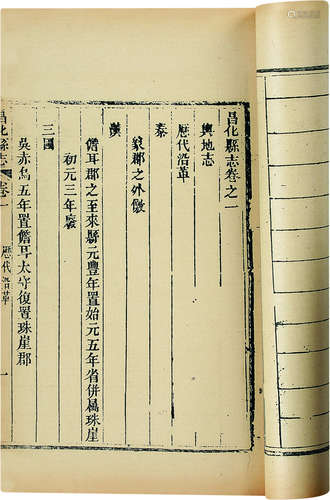 昌化縣志卷之一
輿地志
歷代沿革
秦
象郡之外徼
漢
儋耳郡之至來縣元豐年置始元五年省併屬珠崖
初元三年廢
三國
吳赤烏五年置儋耳太守復置珠崖郡
昌化縣志
卷一
歷代沿革
一